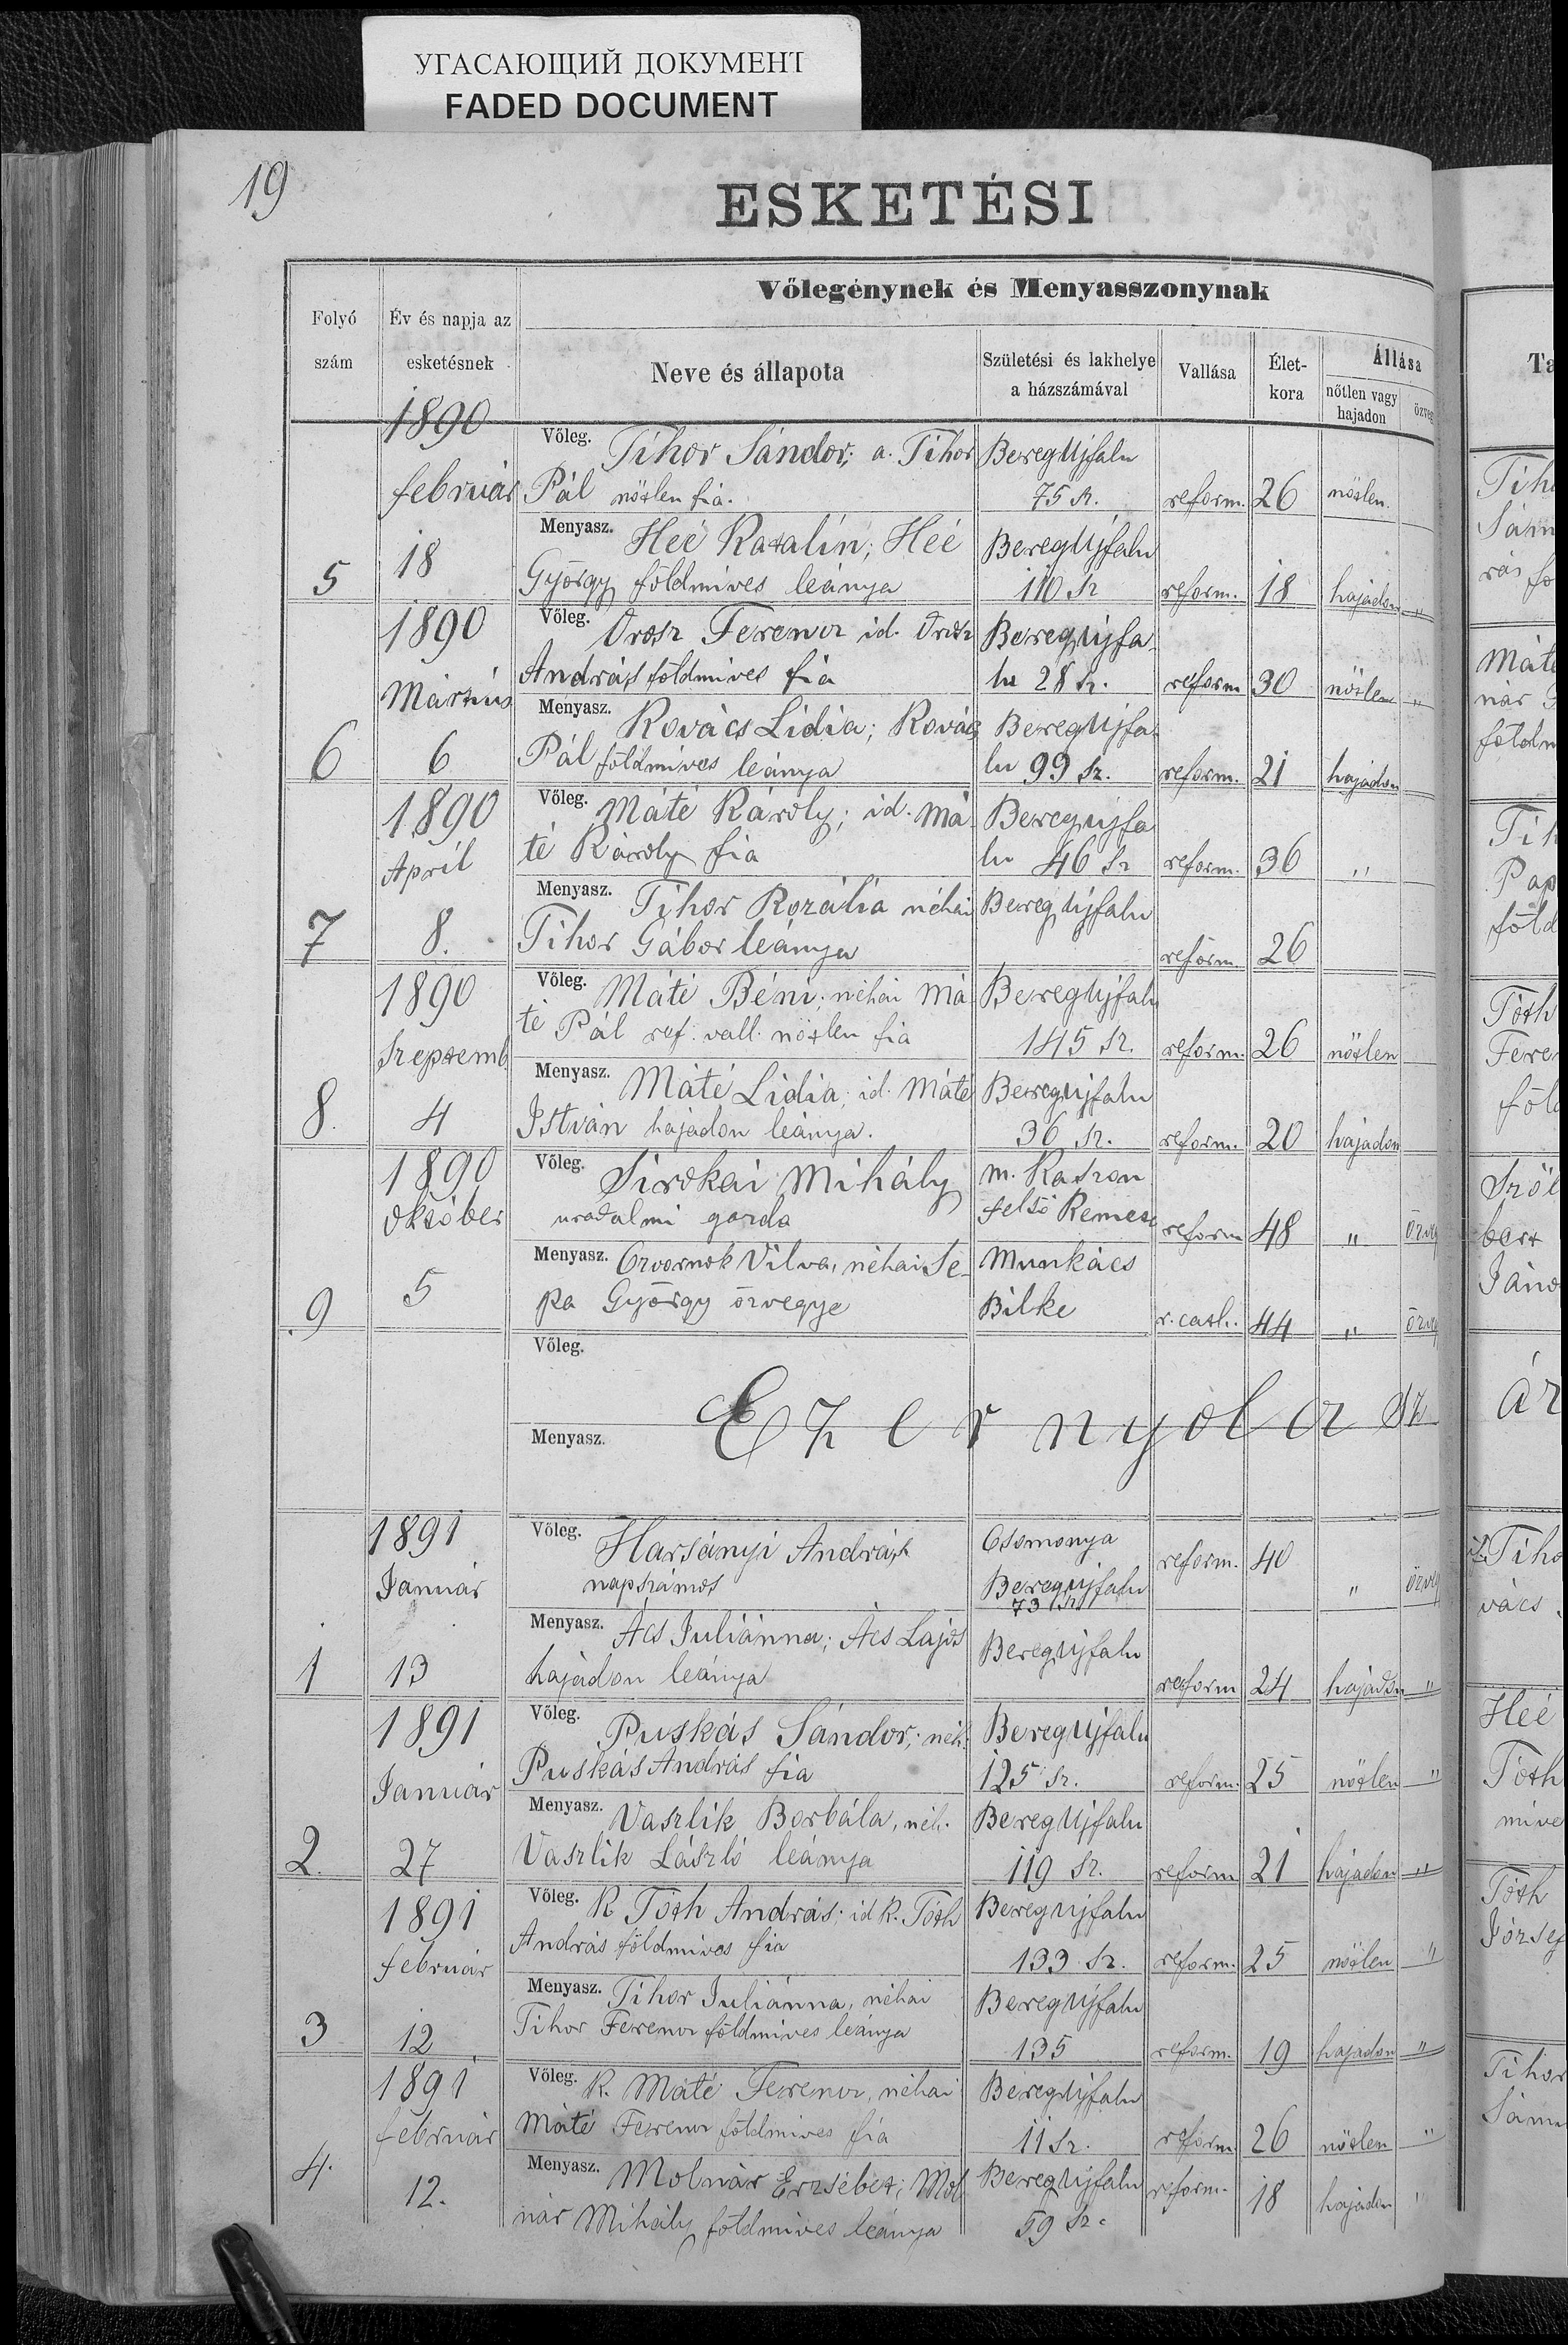 УГАСАЮЩИЙ ДОКУМЕНТ
FADED DOCUMENT
19
ESKETÉSI
Vőlegénynek és Menyasszonynak
Folyó szám
Év és napja az esketésnek
Neve és állapota
Születési és lakhelye a házszámával
Vallása
Életkora
Állása
nőtlen vagy hajadon
özveg
1890 február Vőleg. Tihor Sándor; a. Tihor BeregUjfalu
Pál nőtlen fia. 75 sz. reform. 26 nőtlen.
18 Menyasz. Heé Katalin; Heé BeregUjfalu
5 György földmives leánya 110 sz reform. 18 hajadon "
1890 Vőleg. Orosz Ferencz id. Orosz BeregUjfa-
Márzius András földmives fia lu 28 sz. reform 30 nőtlen "
Menyasz. Kovács Lidia; Kovács BeregUjfa-
6 6 Pál földmives leánya lu 99 sz. reform. 21 hajadon
1890 Vőleg. Máté Károly; id. Má- BeregUjfa
April té Károly fia lu 46 sz reform. 36 "
Menyasz. Tihor Rozália néhai BeregUjfalu
7 8. Tihor Gábor leánya reform. 26
1890 Vőleg. Máté Béni; néhai Má- BeregUjfalu
Szeptemb. té Pál ref. vall. nőtlen fia 145 sz. reform. 26 nőtlen
Menyasz. Máté Lidia; id. Máté BeregUjfalu
8. 4 István hajadon leánya. 36 sz. reform. 20 hajadon
1890 Vőleg. Sirokai Mihály m. Kaszon
Október uradalmi gazda felső Remesz reform 48 " özveg
Menyasz. Ozvornok Vilva, néhai Se- Munkács
9 5 ka György özvegye Bilke r. cath. 44 " özveg
Vőleg.
Ezernyolcz sz
Menyasz.
1891 Vőleg. Harsányi András Csomonya
Január napszámos BeregUjfalu 73 sz reform. 40 " özveg
Menyasz. Ács Juliánna; Ács Lajos BeregUjfalu
1 13 hajadon leánya reform 24 hajadon "
1891 Vőleg. Puskás Sándor; néh. BeregUjfalu
Január Puskás András fia 125 sz. reform. 25 nőtlen "
Menyasz. Vaszlik Borbála, néh. BeregUjfalu
2. 27 Vaszlik László leánya 119 sz. reform 21 hajadon "
1891 Vőleg. K Tóth András; id K. Tóth BeregUjfalu
február András földmives fia 133 sz. reform. 25 nőtlen "
Menyasz. Tihor Juliánna, néhai BeregUjfalu
3 12 Tihor Ferencz földmives leánya 135 reform. 19 hajadon "
1891 Vőleg. K. Máté Ferencz, néhai BeregUjfalu
február Máté Ferencz földmives fia 11 sz. reform. 26 nőtlen "
4. 12. Menyasz. Molnár Erzsébet; Mol- BeregUjfalu reform. 18 hajadon "
nár Mihály földmives leánya 59 sz.
Ta
Tih
Sám
rás fö
Máté
nár
földm
Tih
Pap
föld
Tóth
Fere
föl
Szől
bert
Jáno
ár
Tiho
vács
Heé
Tóth
mive
Tóth
József
Tihor
Sám